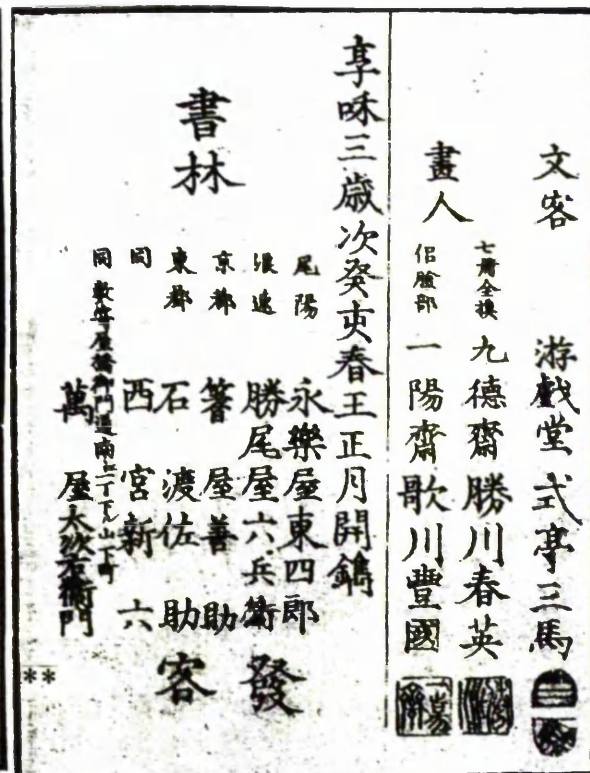 文客　游戲堂　式亭三馬
畫人
七册全摸　九德齋　勝川春英
侶臉部　一陽齋　歌川豐國
享咊三歳次癸亥春王正月開鐫
書林
尾陽　永樂屋東四郎
浪速　勝尾屋六兵衛
京都　箸屋善助
東都　石渡佐助
同　西宮新六
同數寄屋橋御門通南二丁下ル山下町　萬屋太治右衛門
發客
**